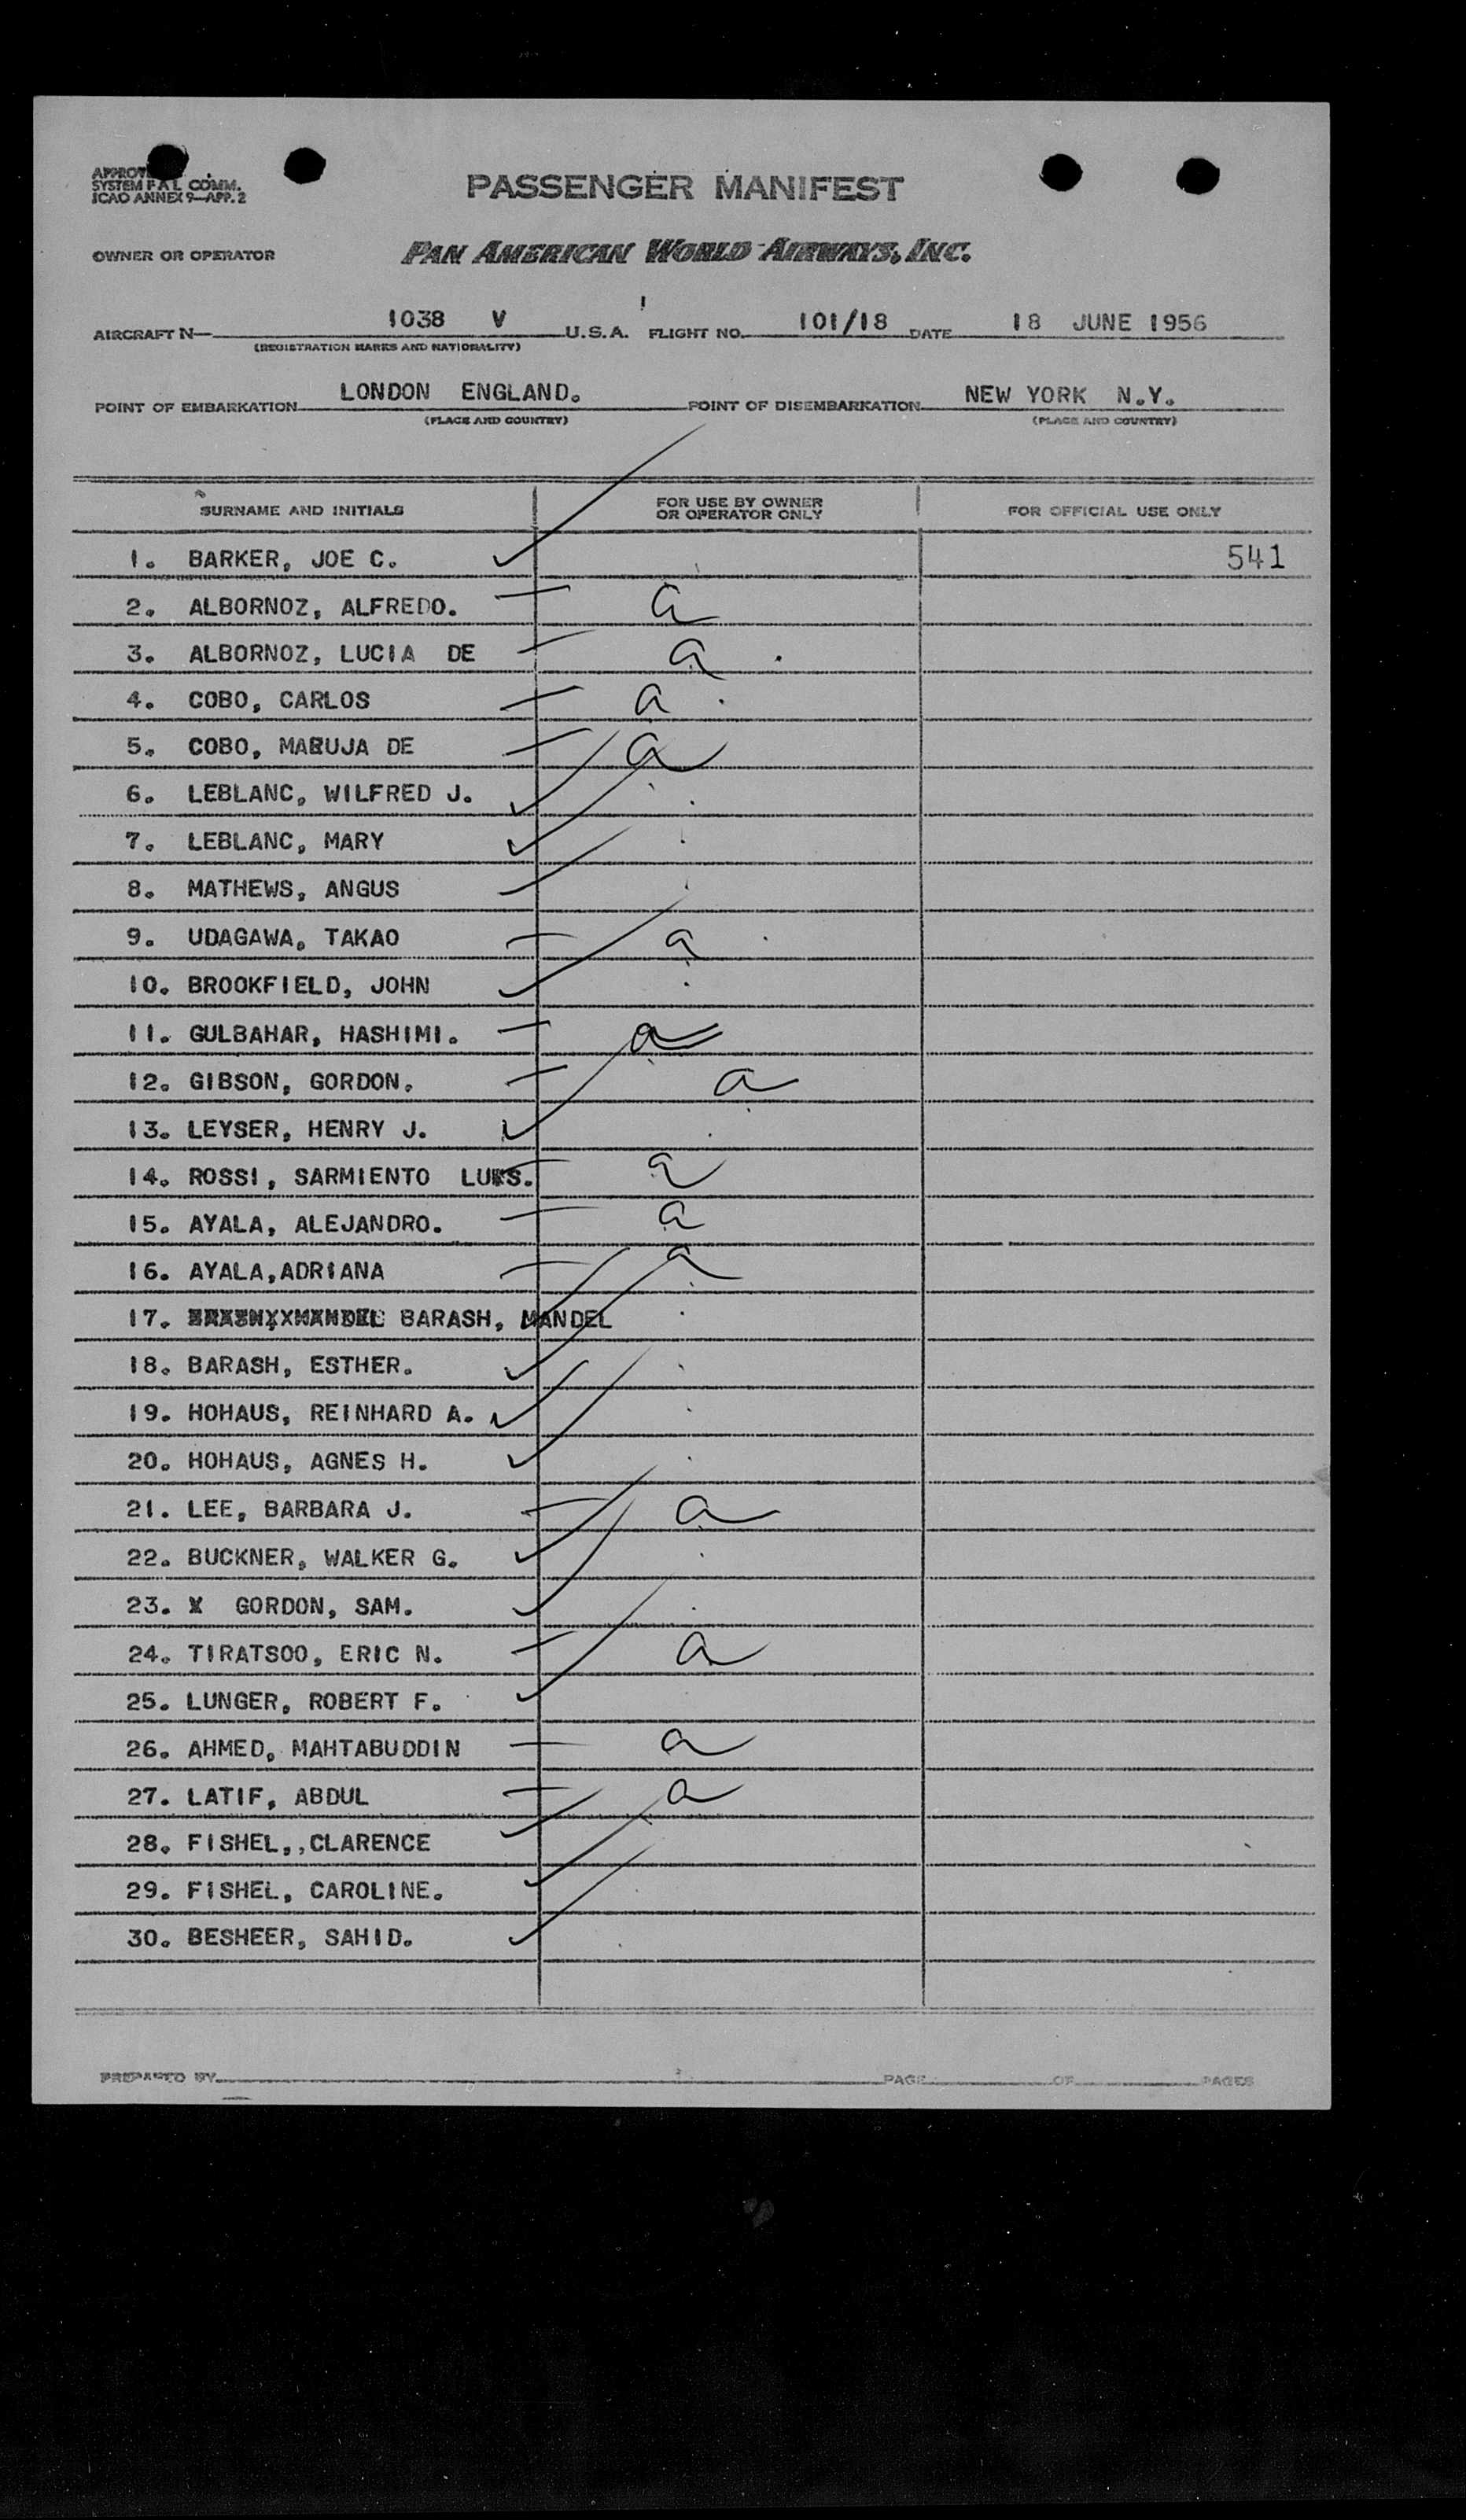 APPROV
SYSTEM F A L COMM.
ICAO ANNEX 9—APP. 2
PASSENGER MANIFEST
OWNER OR OPERATOR PAN AMERICAN WORLD AIRWAYS, INC.
AIRCRAFT N— 1038 V U.S.A. FLIGHT NO. 101/18 DATE 18 JUNE 1956
(REGISTRATION MARKS AND NATIONALITY)
POINT OF EMBARKATION LONDON ENGLAND. POINT OF DISEMBARKATION NEW YORK N.Y.
(PLACE AND COUNTRY) (PLACE AND COUNTRY)
SURNAME AND INITIALS FOR USE BY OWNER OR OPERATOR ONLY FOR OFFICIAL USE ONLY
1. BARKER, JOE C. ✓ 541
2. ALBORNOZ, ALFREDO. — a
3. ALBORNOZ, LUCIA DE — a
4. COBO, CARLOS — a
5. COBO, MARUJA DE — a
6. LEBLANC, WILFRED J. ✓
7. LEBLANC, MARY ✓
8. MATHEWS, ANGUS ✓
9. UDAGAWA, TAKAO — a
10. BROOKFIELD, JOHN ✓
11. GULBAHAR, HASHIMI. — a
12. GIBSON, GORDON. — a
13. LEYSER, HENRY J. ✓
14. ROSSI, SARMIENTO LUIS. — a
15. AYALA, ALEJANDRO. — a
16. AYALA,ADRIANA — a
17. BARASH, MANDEL ✓
18. BARASH, ESTHER. ✓
19. HOHAUS, REINHARD A. ✓
20. HOHAUS, AGNES H. ✓
21. LEE, BARBARA J. — a
22. BUCKNER, WALKER G. ✓
23. X GORDON, SAM. ✓
24. TIRATSOO, ERIC N. — a
25. LUNGER, ROBERT F. ✓
26. AHMED, MAHTABUDDIN — a
27. LATIF, ABDUL — a
28. FISHEL,,CLARENCE ✓
29. FISHEL, CAROLINE. ✓
30. BESHEER, SAHID. ✓
PREPARED BY PAGE OF PAGES